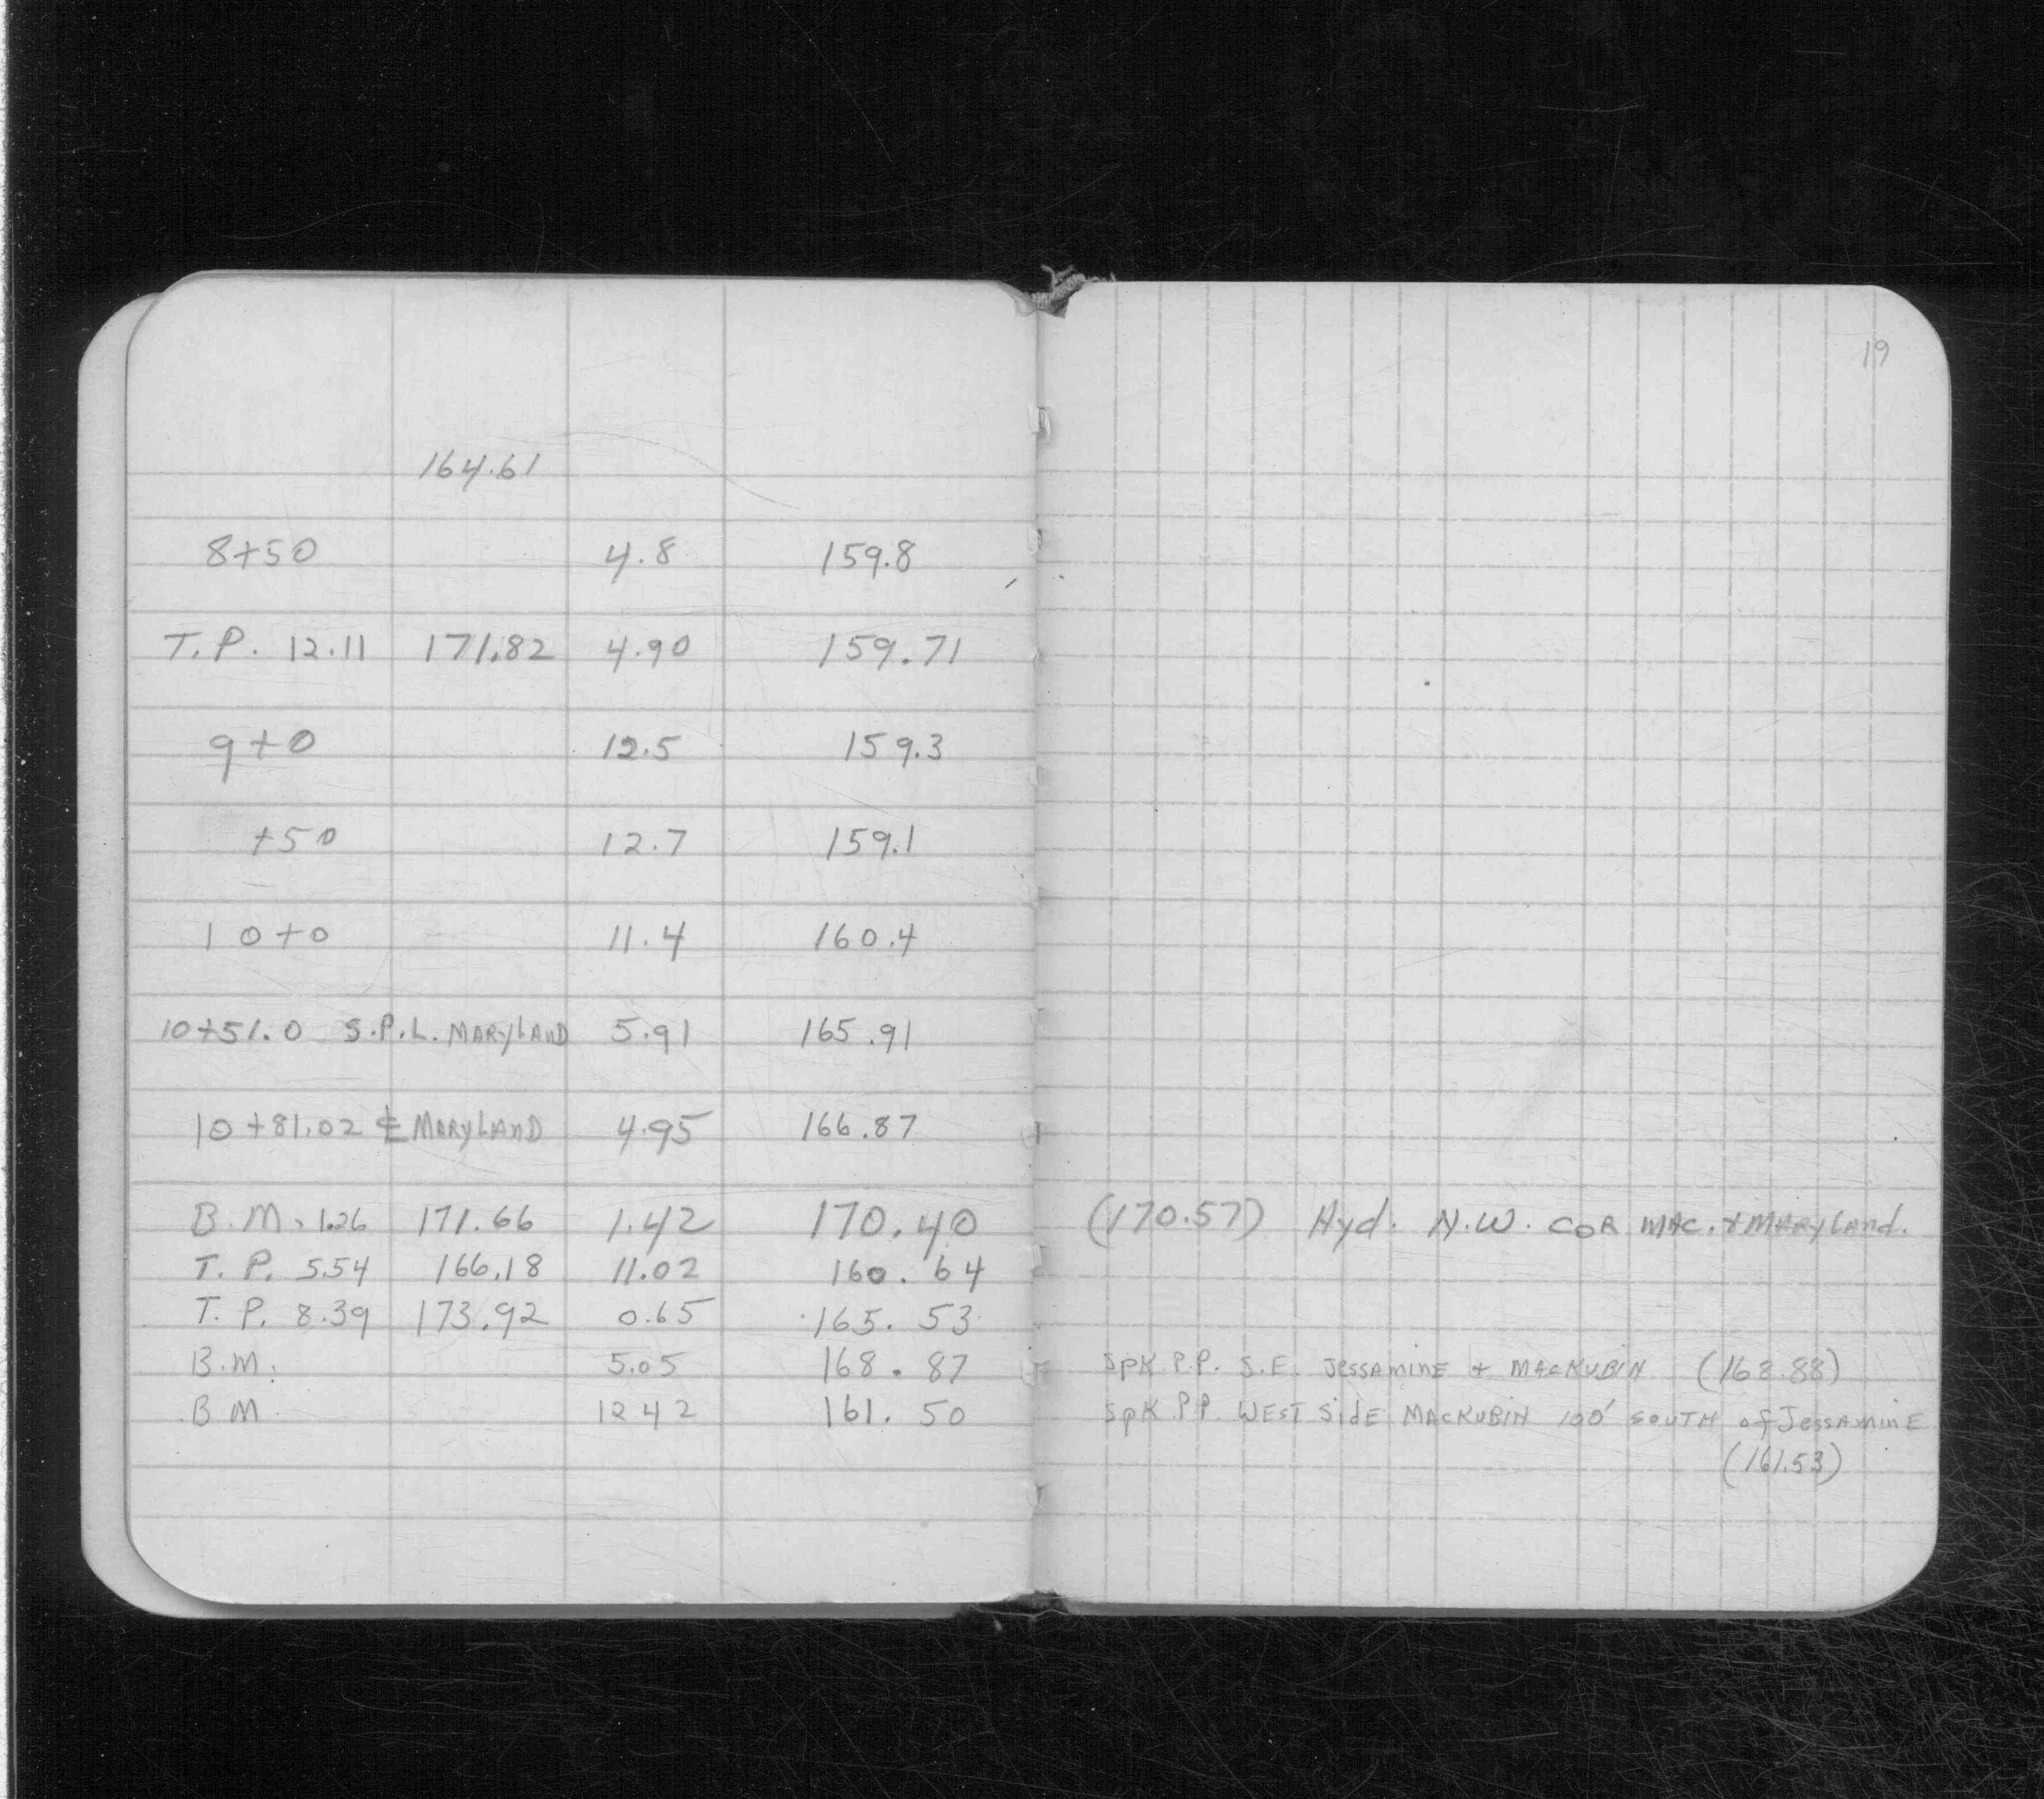 19
164.61
8+50 4.8 159.8
T.P. 12.11 171.82 4.90 159.71
9+0 12.5 159.3
+50 12.7 159.1
10+0 11.4 160.4
10+51.0 S.P.L. MARYLAND 5.91 165.91
10+81.02 ℄ MARYLAND 4.95 166.87
B.M. 1.26 171.66 1.42 170.40 (170.57) Hyd. N.W. COR MAC. & MARYLAND.
T.P. 5.54 166.18 11.02 160.64
T.P. 8.39 173.92 0.65 165.53
B.M. 5.05 168.87 SPK P.P. S.E. JESSAMINE + MACKUBIN (168.88)
B M 12 42 161.50 SPK P.P. WEST SIDE MACKUBIN 100' SOUTH of JESSAMINE
(161.53)